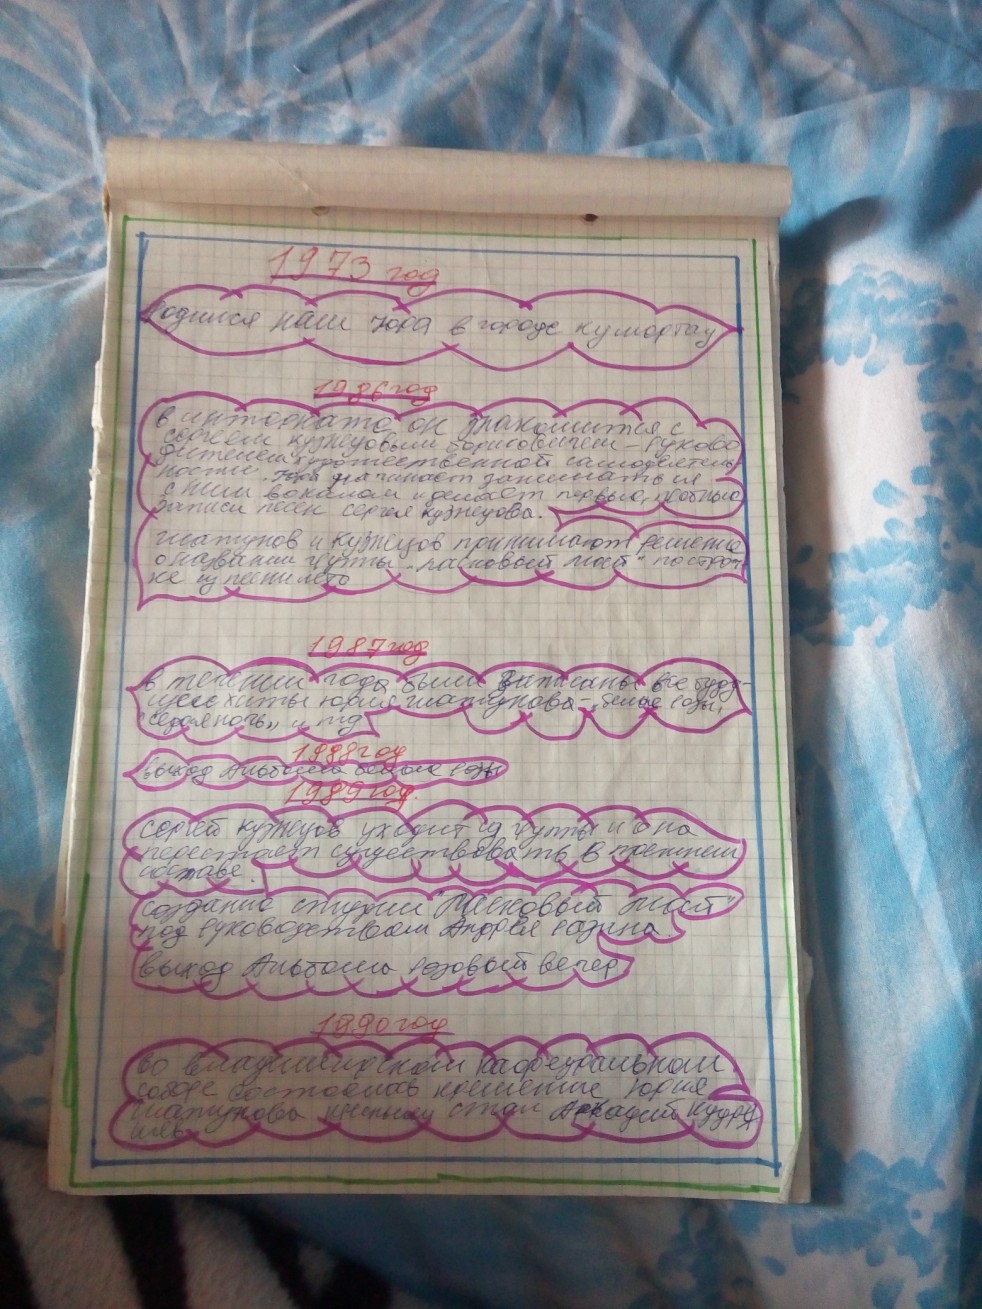 1973 год
родился наш Юра в городе кумортау
1986 год
в интернате он знакомится с
сергеем кузнецовым борисовичем - руково
дителем художественной самодеятель
ности. Юра начинает заниматься
с ним вокалом и делает первые, пробные
записи песен сергея кузнецова.
шатунов и кузнецов принимают решение
о названии группы „ласковый май" по строч
ке из песни лето
1987 год
в течении года были записаны все буду-
щие хиты юрия шатунова - „белые розы,
"седая ночь„ и тд
1988 год
выход Альбома белые розы
1989 год.
сергей кузнецов уходит из группы и она
перестаёт существовать в прежнем
составе.
создание студии "Ласковый май"
под руководством Андрея разина.
выход Альбома розовый вечер
1990 год
во владимирском кафедральном
соборе состоялась крещение юрия
шатунова крёстным стал Аркадий Кудря
шов